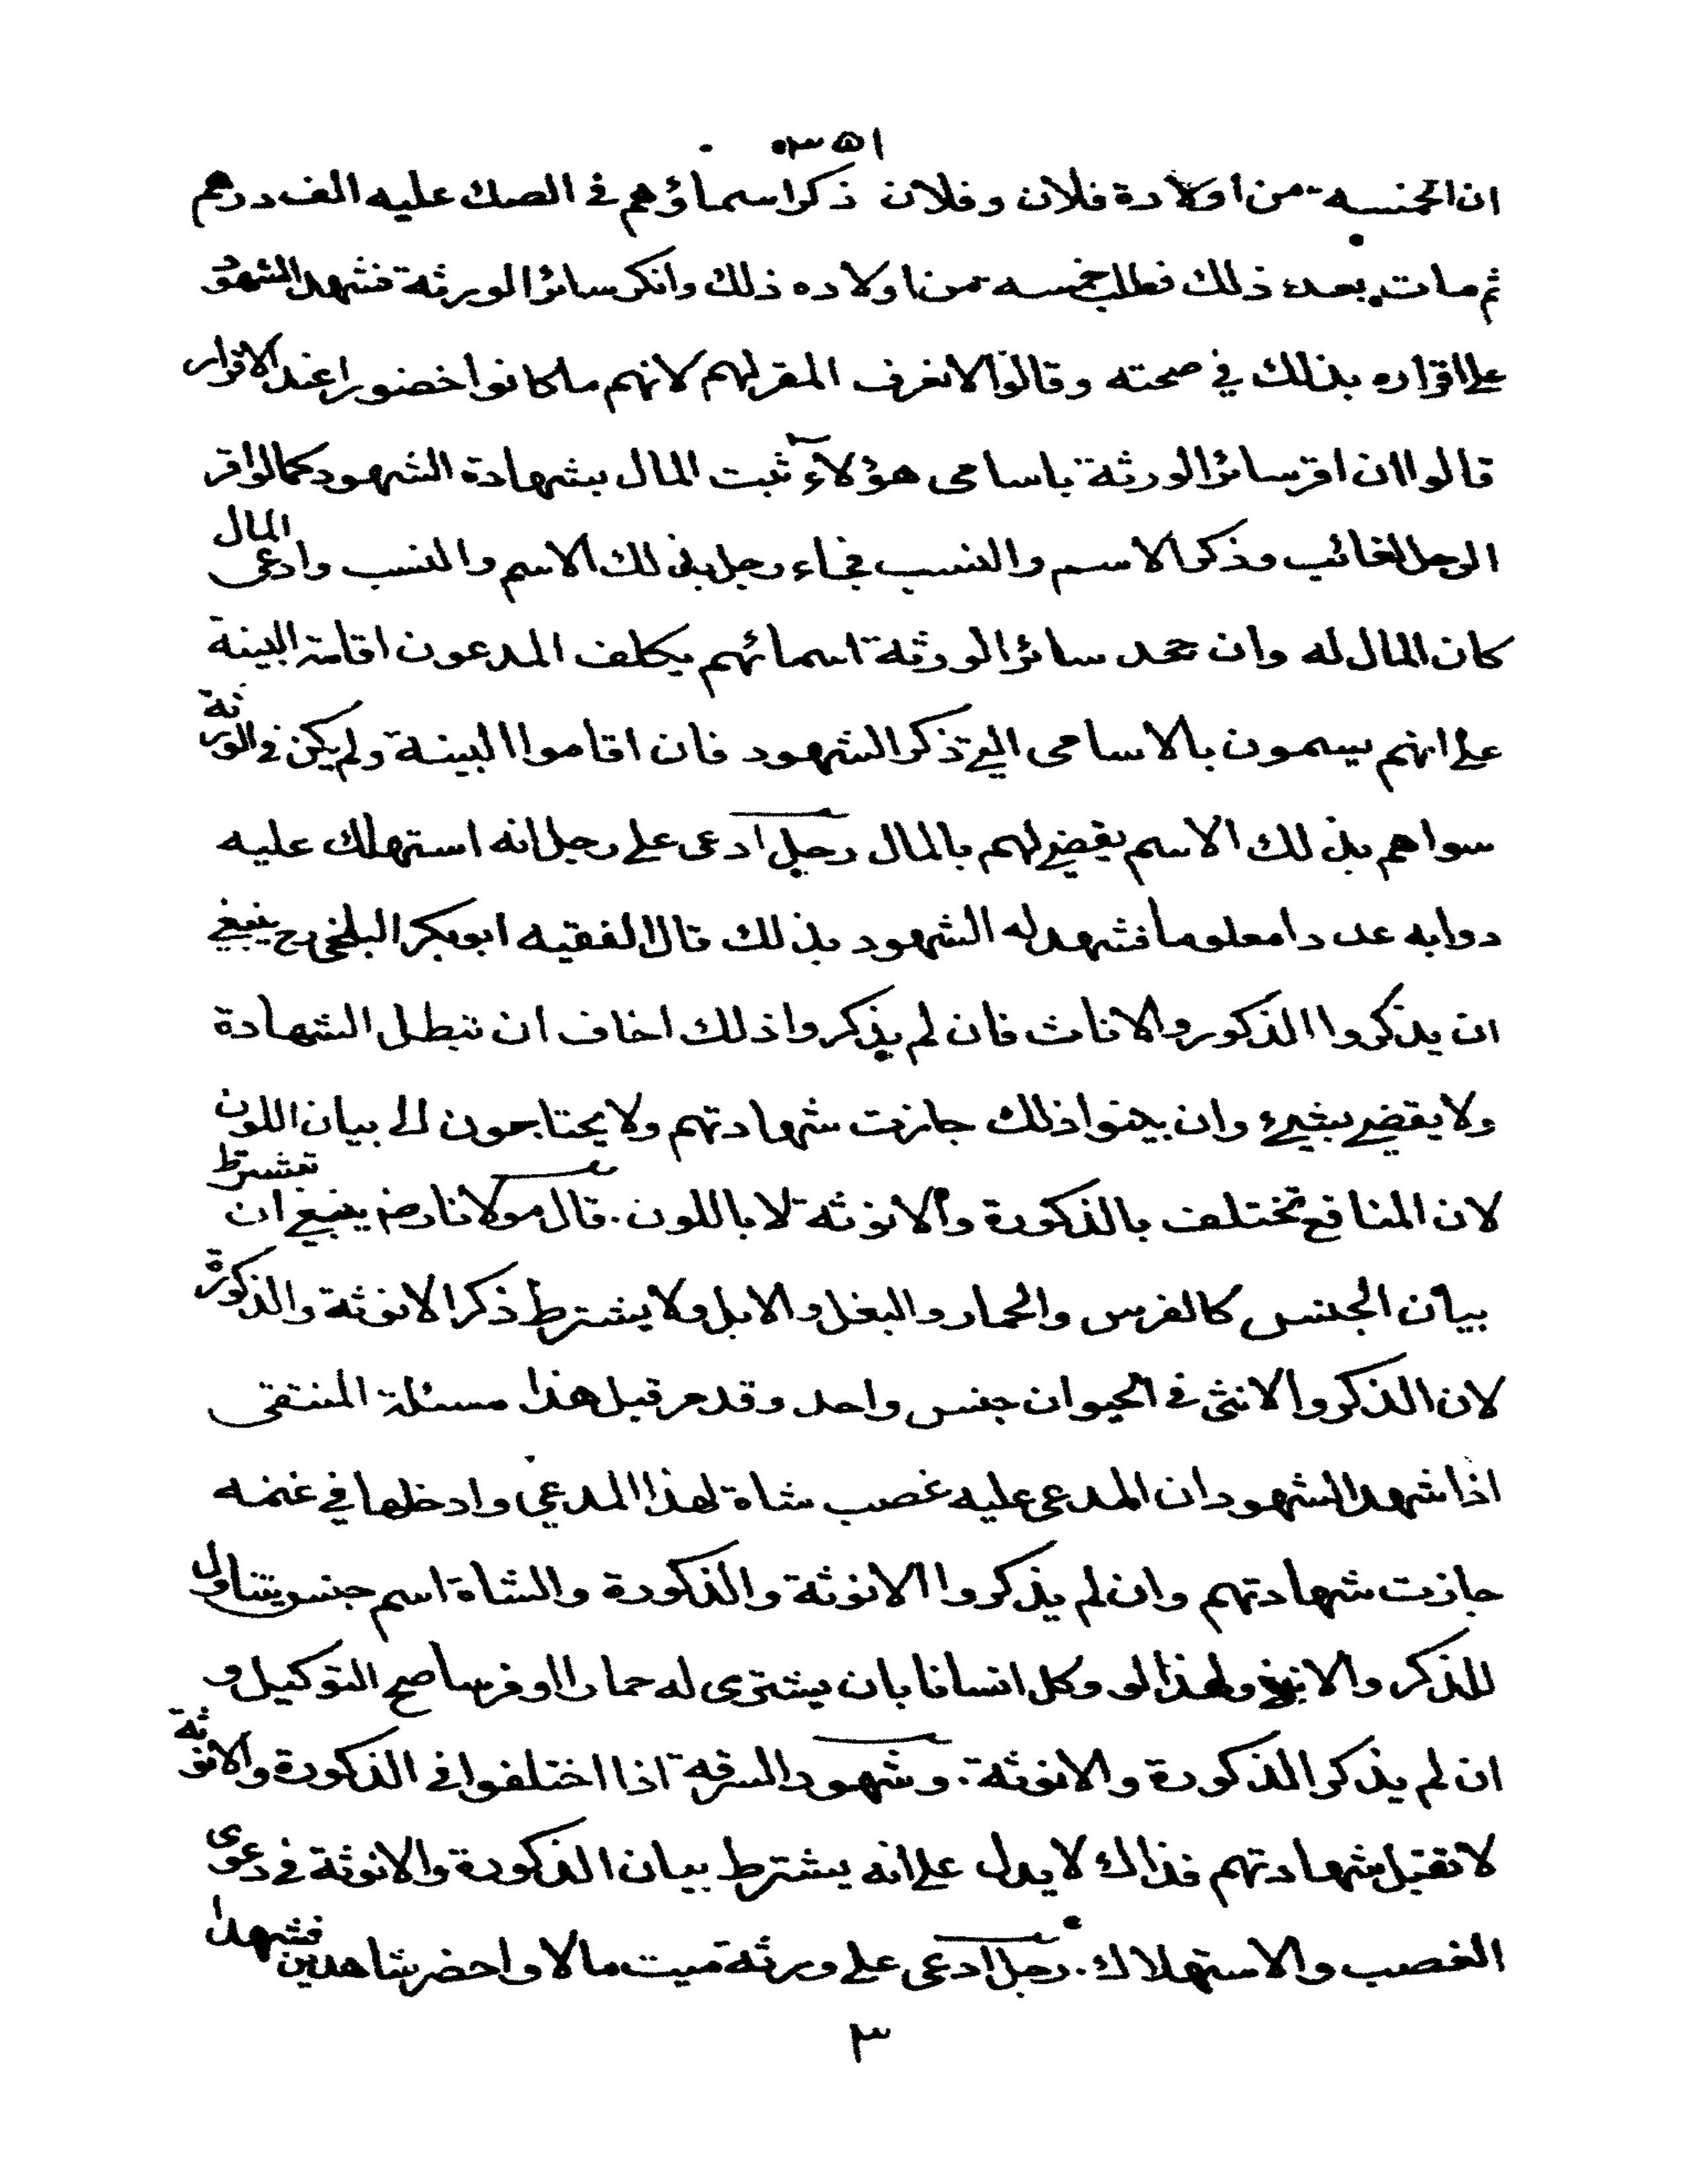 ٣٥١
ان الخمسة من اولاده فلان وفلان ذكر اسماؤهم في الصك عليه الف درهم
ثم مات بعد ذلك فطلب خمسة من اولاده ذلك وانكر سائر الورثة فشهد الشهود
على اقراره بذلك في صحته وقالوا لانعرف المقر لهم لانهم ماكانوا حضورا عند الاقرار
قالوا ان اقر سائر الورثة باسامى هؤلاء ثبت المال بشهادة الشهود كما لو اقر
الرجل لغائب وذكر الاسم والنسب فجاء رجل بذلك الاسم والنسب وادعى المال
كان المال له وان جحد سائر الورثة اسمائهم يكلف المدعون اقامة البينة
على انهم يسمون بالاسامى التي ذكر الشهود فان اقاموا البينة ولم يكن في الورثة
سواهم بذلك الاسم يقضي لهم بالمال رجل ادعى على رجل انه استهلك عليه
دوابه عددا معلوما فشهد له الشهود بذلك قال الفقيه ابوبكر البلخي رح ينبغي
ان يذكروا الذكور والاناث فان لم يذكروا ذلك اخاف ان تبطل الشهادة
ولايقضي بشيء وان بينوا ذلك جازت شهادتهم ولايحتاجون الى بيان اللون
لان المنافع تختلف بالذكورة والانوثة لا باللون. قال مولانا رضه ينبغي ان تشترط
بيان الجنس كالفرس والحمار والبغل والابل ولايشترط ذكر الانوثة والذكورة
لان الذكر والانثى في الحيوان جنس واحد وقد مر قبل هذا مسئلة المنتقى
اذا شهد الشهود ان المدعى عليه غصب شاة لهذا المدعي وادخلها في غنمه
جازت شهادتهم وان لم يذكروا الانوثة والذكورة والشاة اسم جنس يتناول
للذكر والانثى ولهذا لو وكل انسانا بان يشترى له حمارا او فرسا صح التوكيل و
ان لم يذكر الذكورة والانوثة. وشهود السرقة اذا اختلفوا في الذكورة والانوثة
لاتقبل شهادتهم فذاك لايدل على انه يشترط بيان الذكورة والانوثة في دعوى
الغصب والاستهلاك. رجل ادعى على ورثة ميت مالا واحضر شاهدين فشهدا
٣